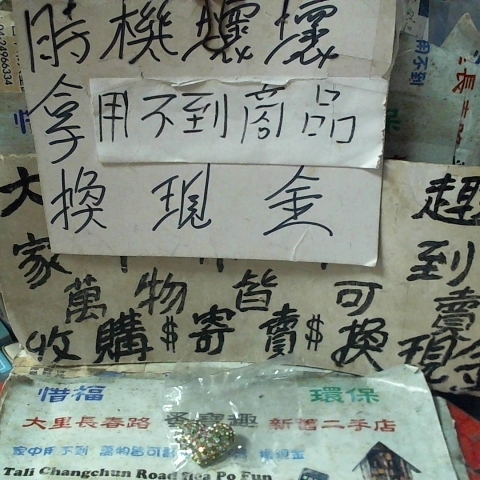 時機壞壞
拿用不到商品
換現金
大家
趕到賣現金
萬物皆可
收購$寄賣$換
惜福 環保
大里長春路 蚤寶趣 新舊二手店
家中用不到 萬物皆可
Tali Changchun Road Flea Po Fun